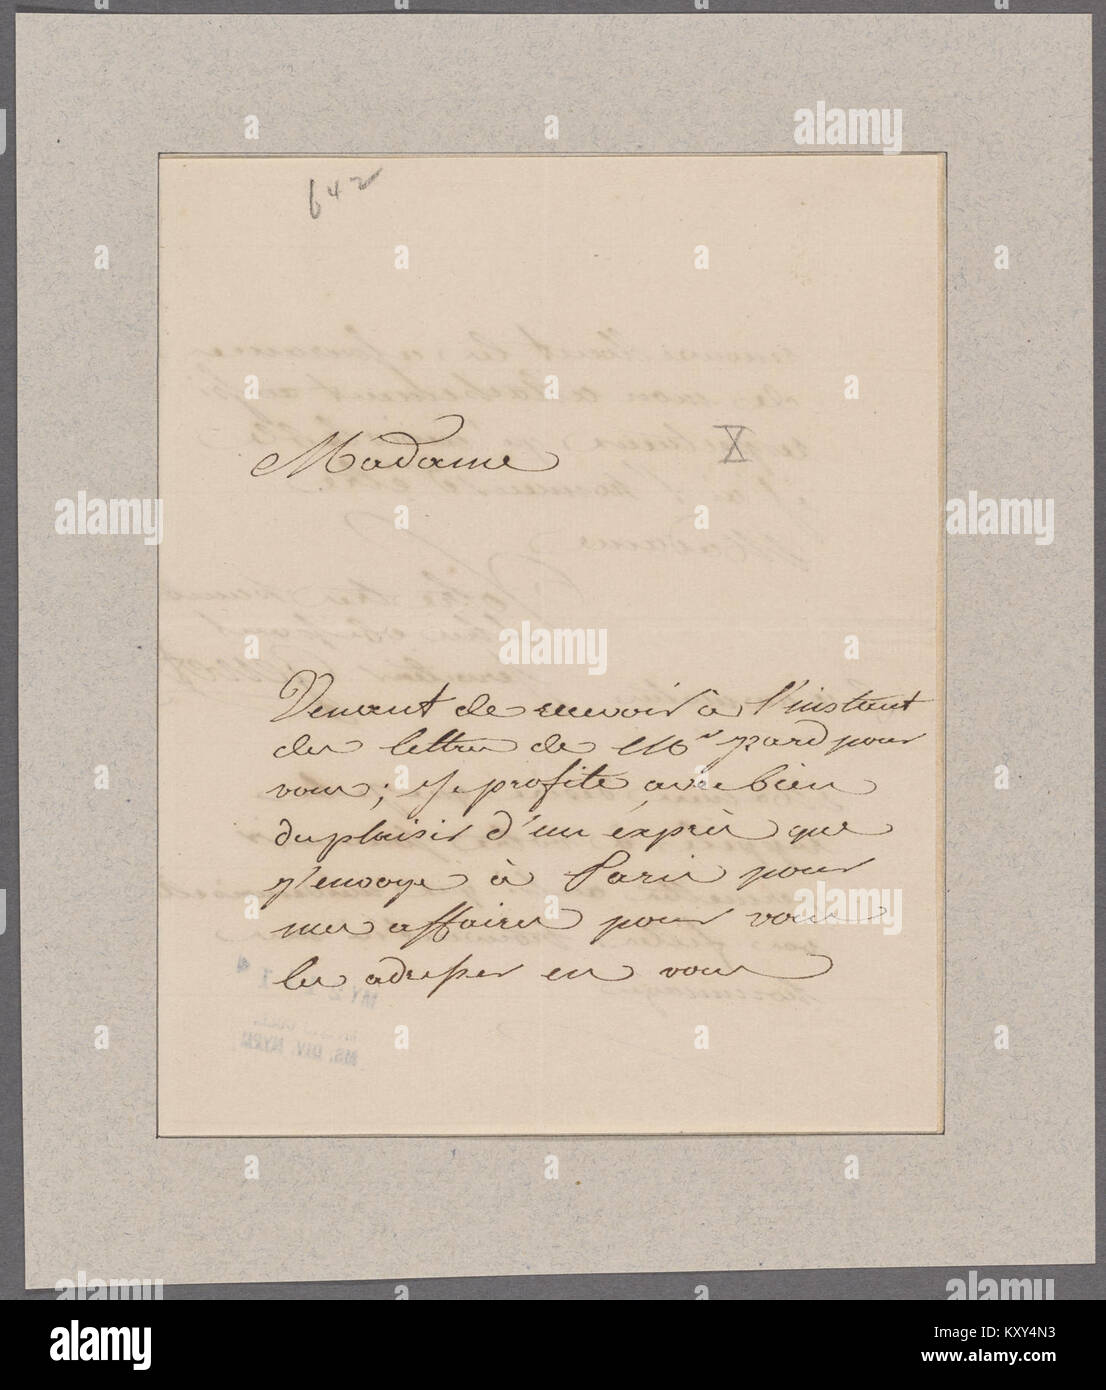 642
Madame
X
Venant de recevoir à l'instant
des lettres de Mr jzard pour
vous; je profite avec bien
du plaisir d'un éxprès que
j'envoye à Paris pour
mes affaires pour vous
les adresser en vous
MS. DIV. NYPL
alamy
Image ID: KXY4N3
www.alamy.com